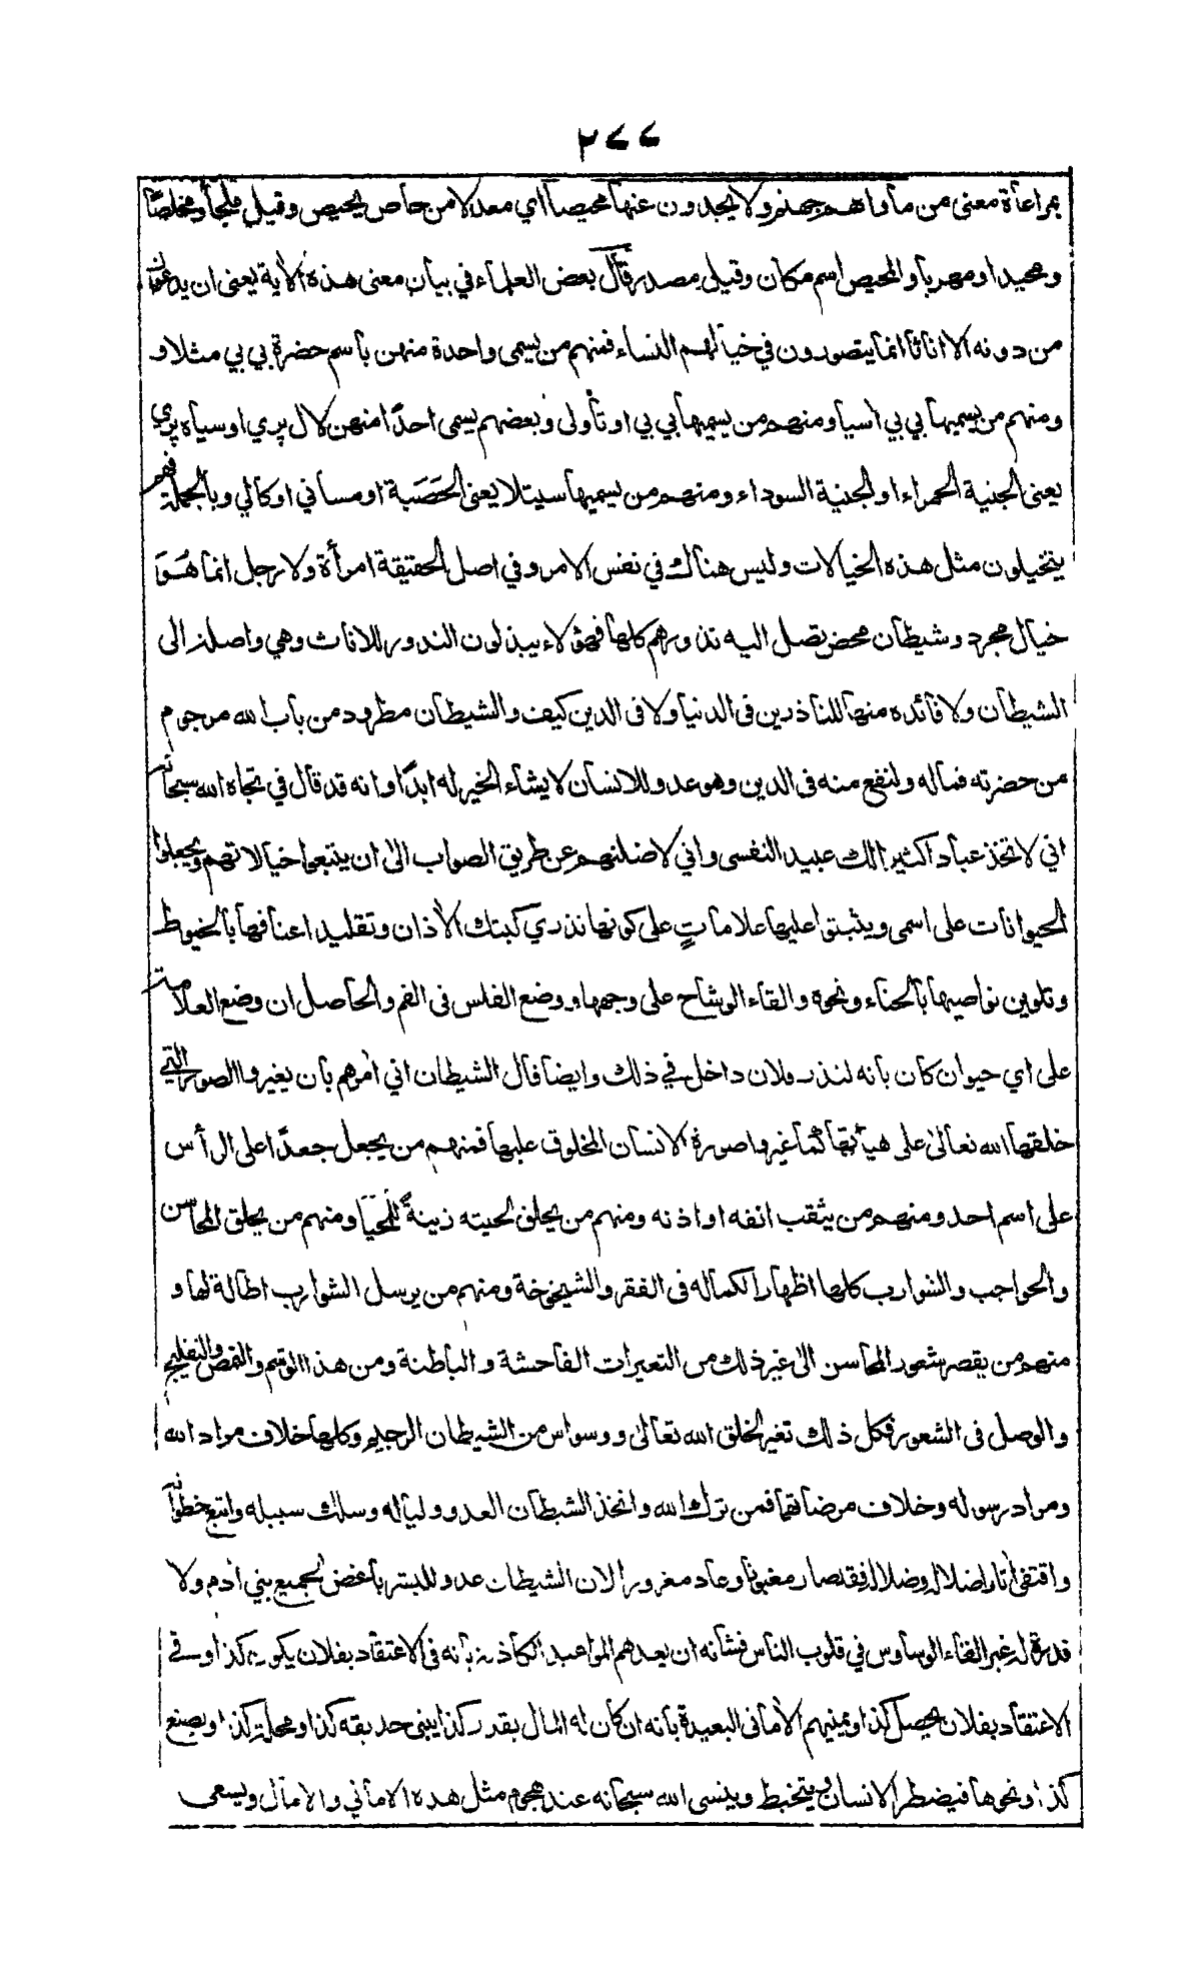 ٢٧٧
بمراعاة معنى من مأواهم جهنم ولا يجدون عنها محيصا اي معدلا من حاص يحيص وقيل ملجأ ومخلصا
ومحيدا ومهربا والمحيص اسم مكان وقيل مصدر قال بعض العلماء في بيان معنى هذه الآية يعنى ان يدعون
من دونه الا اناثا انما يتصورون في خيالهم النساء فمنهم من يسمى واحدة منهن باسم حضرة بي بي مثلا و
ومنهم من يسميها بي بي آسيا ومنهم من يسميها بي بي اوتاولى وبعضهم يسمى احدًا منهن لال پري او سياه پري
يعنى الجنية الحمراء او الجنية السوداء ومنهم من يسميها سيتلا يعنى الحَصَبة او مساني او كالي وبالجملة فهم
يتخيلون مثل هذه الخيالات وليس هناك في نفس الامر وفي اصل الحقيقة امرأة ولا رجل انما هُوَ
خيال مجرد وشيطان محض تصل اليه نذورهم كلها فهؤلاء يبذلون النذور للاناث وهي واصلة الى
الشيطان ولا فائده منها للناذرين فى الدنيا ولا فى الدين كيف والشيطان مطرود من باب الله مرجوم
من حضرته فماله ولنفع منه فى الدين وهو عدو للانسان لا يشاء الخير له ابدًا وانه قد قال في تجاه الله سبحانه
اني لاتخذ عبادا كثيرا لك عبيد النفسى واني لاضلنهم عن طريق الصواب الى ان يتبعوا خيالاتهم ويجعلوا
الحيوانات على اسمى ويثبتوا عليها علاماتٍ على كونها نذري كبتك الآذان وتقليد اعناقها بالخيوط
وتلوين نواصيها بالحناء ونحوه والقاء الوشاح على وجهها ووضع الفلس فى الفم والحاصل ان وضع العلامة
على اي حيوان كان بانه لنذر فلان داخل في ذلك وايضا قال الشيطان اني آمرهم بان يغيروا الصور التي
خلقها الله تعالى على هيأتها كما غيروا صورة الانسان المخلوق عليها فمنهم من يجعل جعدًا على الرأس
على اسم احد ومنهم من يثقب انفه او اذنه ومنهم من يحلق لحيته زينةً للمُحَيَّا ومنهم من يحلق المحاسن
والحواجب والشوارب كلها اظهارا لكماله فى الفقر والشيخوخة ومنهم من يرسل الشوارب اطالة لها و
منهم من يقصر شعور المحاسن الى غير ذلك من التغيرات الفاحشة والباطنة ومن هذا الوشم والنمص والتفليج
والوصل فى الشعور فكل ذلك تغير لخلق الله تعالى ووسواس من الشيطان الرجيم وكلها خلاف مراد الله
ومراد رسوله وخلاف مرضاتهما فمن ترك الله واتخذ الشيطان العدو وليا له وسلك سبيله واتبع خطواته
واقتفى آثار اضلاله وضلاله فقد صار مغبونا وعاد مغرورا لان الشيطان عدو للبشر باغض لجميع بني آدم ولا
قدرة له غير القاء الوساوس في قلوب الناس فشانه ان يعدهم المواعيد الكاذبة بانه فى الاعتقاد بفلان يكون كذا وفى
الاعتقاد بفلان يحصل كذا ويمنيهم الامانى البعيدة بانه ان كان له المال بقدر كذا يبنى حديقه كذا ومحلة كذا ويصنع
كذا ونحوها فيضطر الانسان ويتخبط وينسى الله سبحانه عند هجوم مثل هذه الاماني والآمال ويسعى